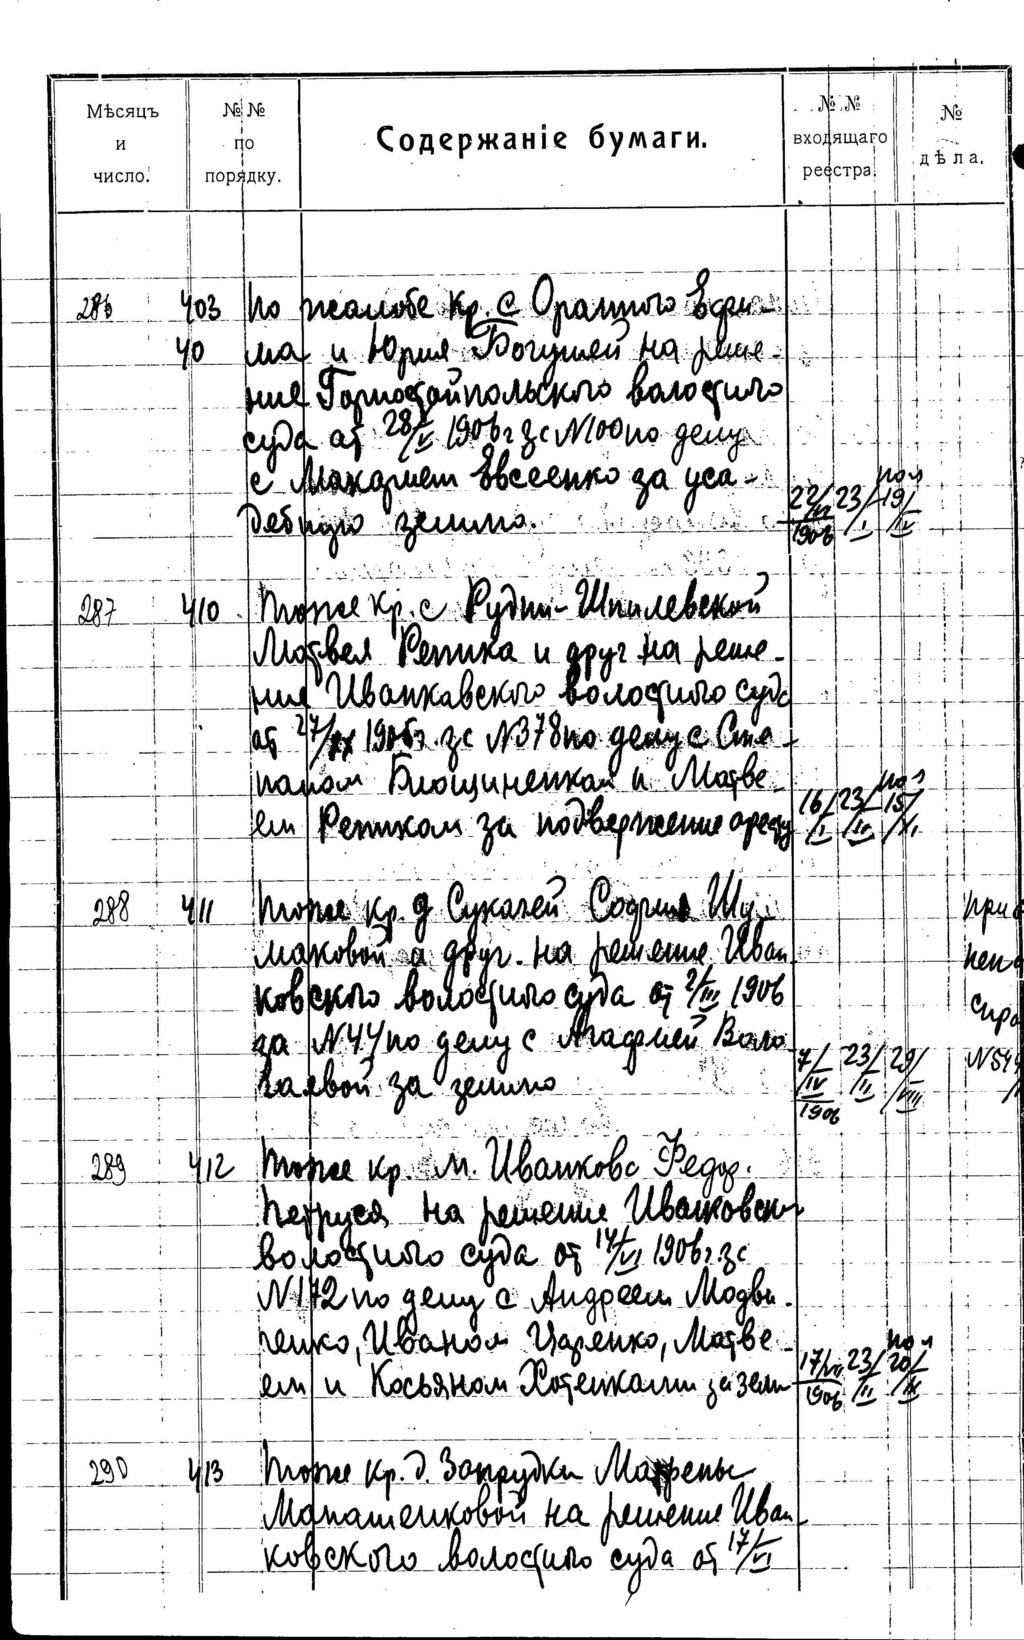 Мѣсяцъ и число.
№№ по порядку.
Содержаніе бумаги.
№№ входящаго реестра.
№ дѣла.
286 403 По жалобе кр. с Оранного Ефи-
40 ма и Юрия Богушей на реше-
ние Горностайпольского волостного
суда от 28/V 1906 г за N100 по делу
с Макарием Евсеенко за уса-
дебную землю. 22/VI 1906 23/I пол 19/IV
287 410 тоже кр. с Рудни-Шпилевской
Матвея Репика и друг на реше-
ния Иванкавского волостного суда
от 27/ 1905 г. за N378 по делу с Сте-
паном и Матве-
ем Репиком за подвержение аресту 16/I 23/II пол 15/XI
288 411 тоже кр. д Сукачей Софии Шу-
маковой а друг. на решение Иван
ковского волостного суда от 2/III 1906
за N44 по делу с Агафией Воло
гаевой за землю 7/IV 1906 23/II 29/VIII
289 412 тоже кр. м. Иванкова Федор.
Петруся на решение Иванковск
волостного суда от 14/VI 1906 г. за
N172 по делу с Андреем Модви-
ченко, Иваном Царенко, Матве-
ем и Косьяном Хотенками за земл 17/VII 1906 23/II пол 20/IX
290 413 тоже кр. д. Запрудки Матрены
Манашенковой на решение Иван
ковского волостного суда от 17/VI